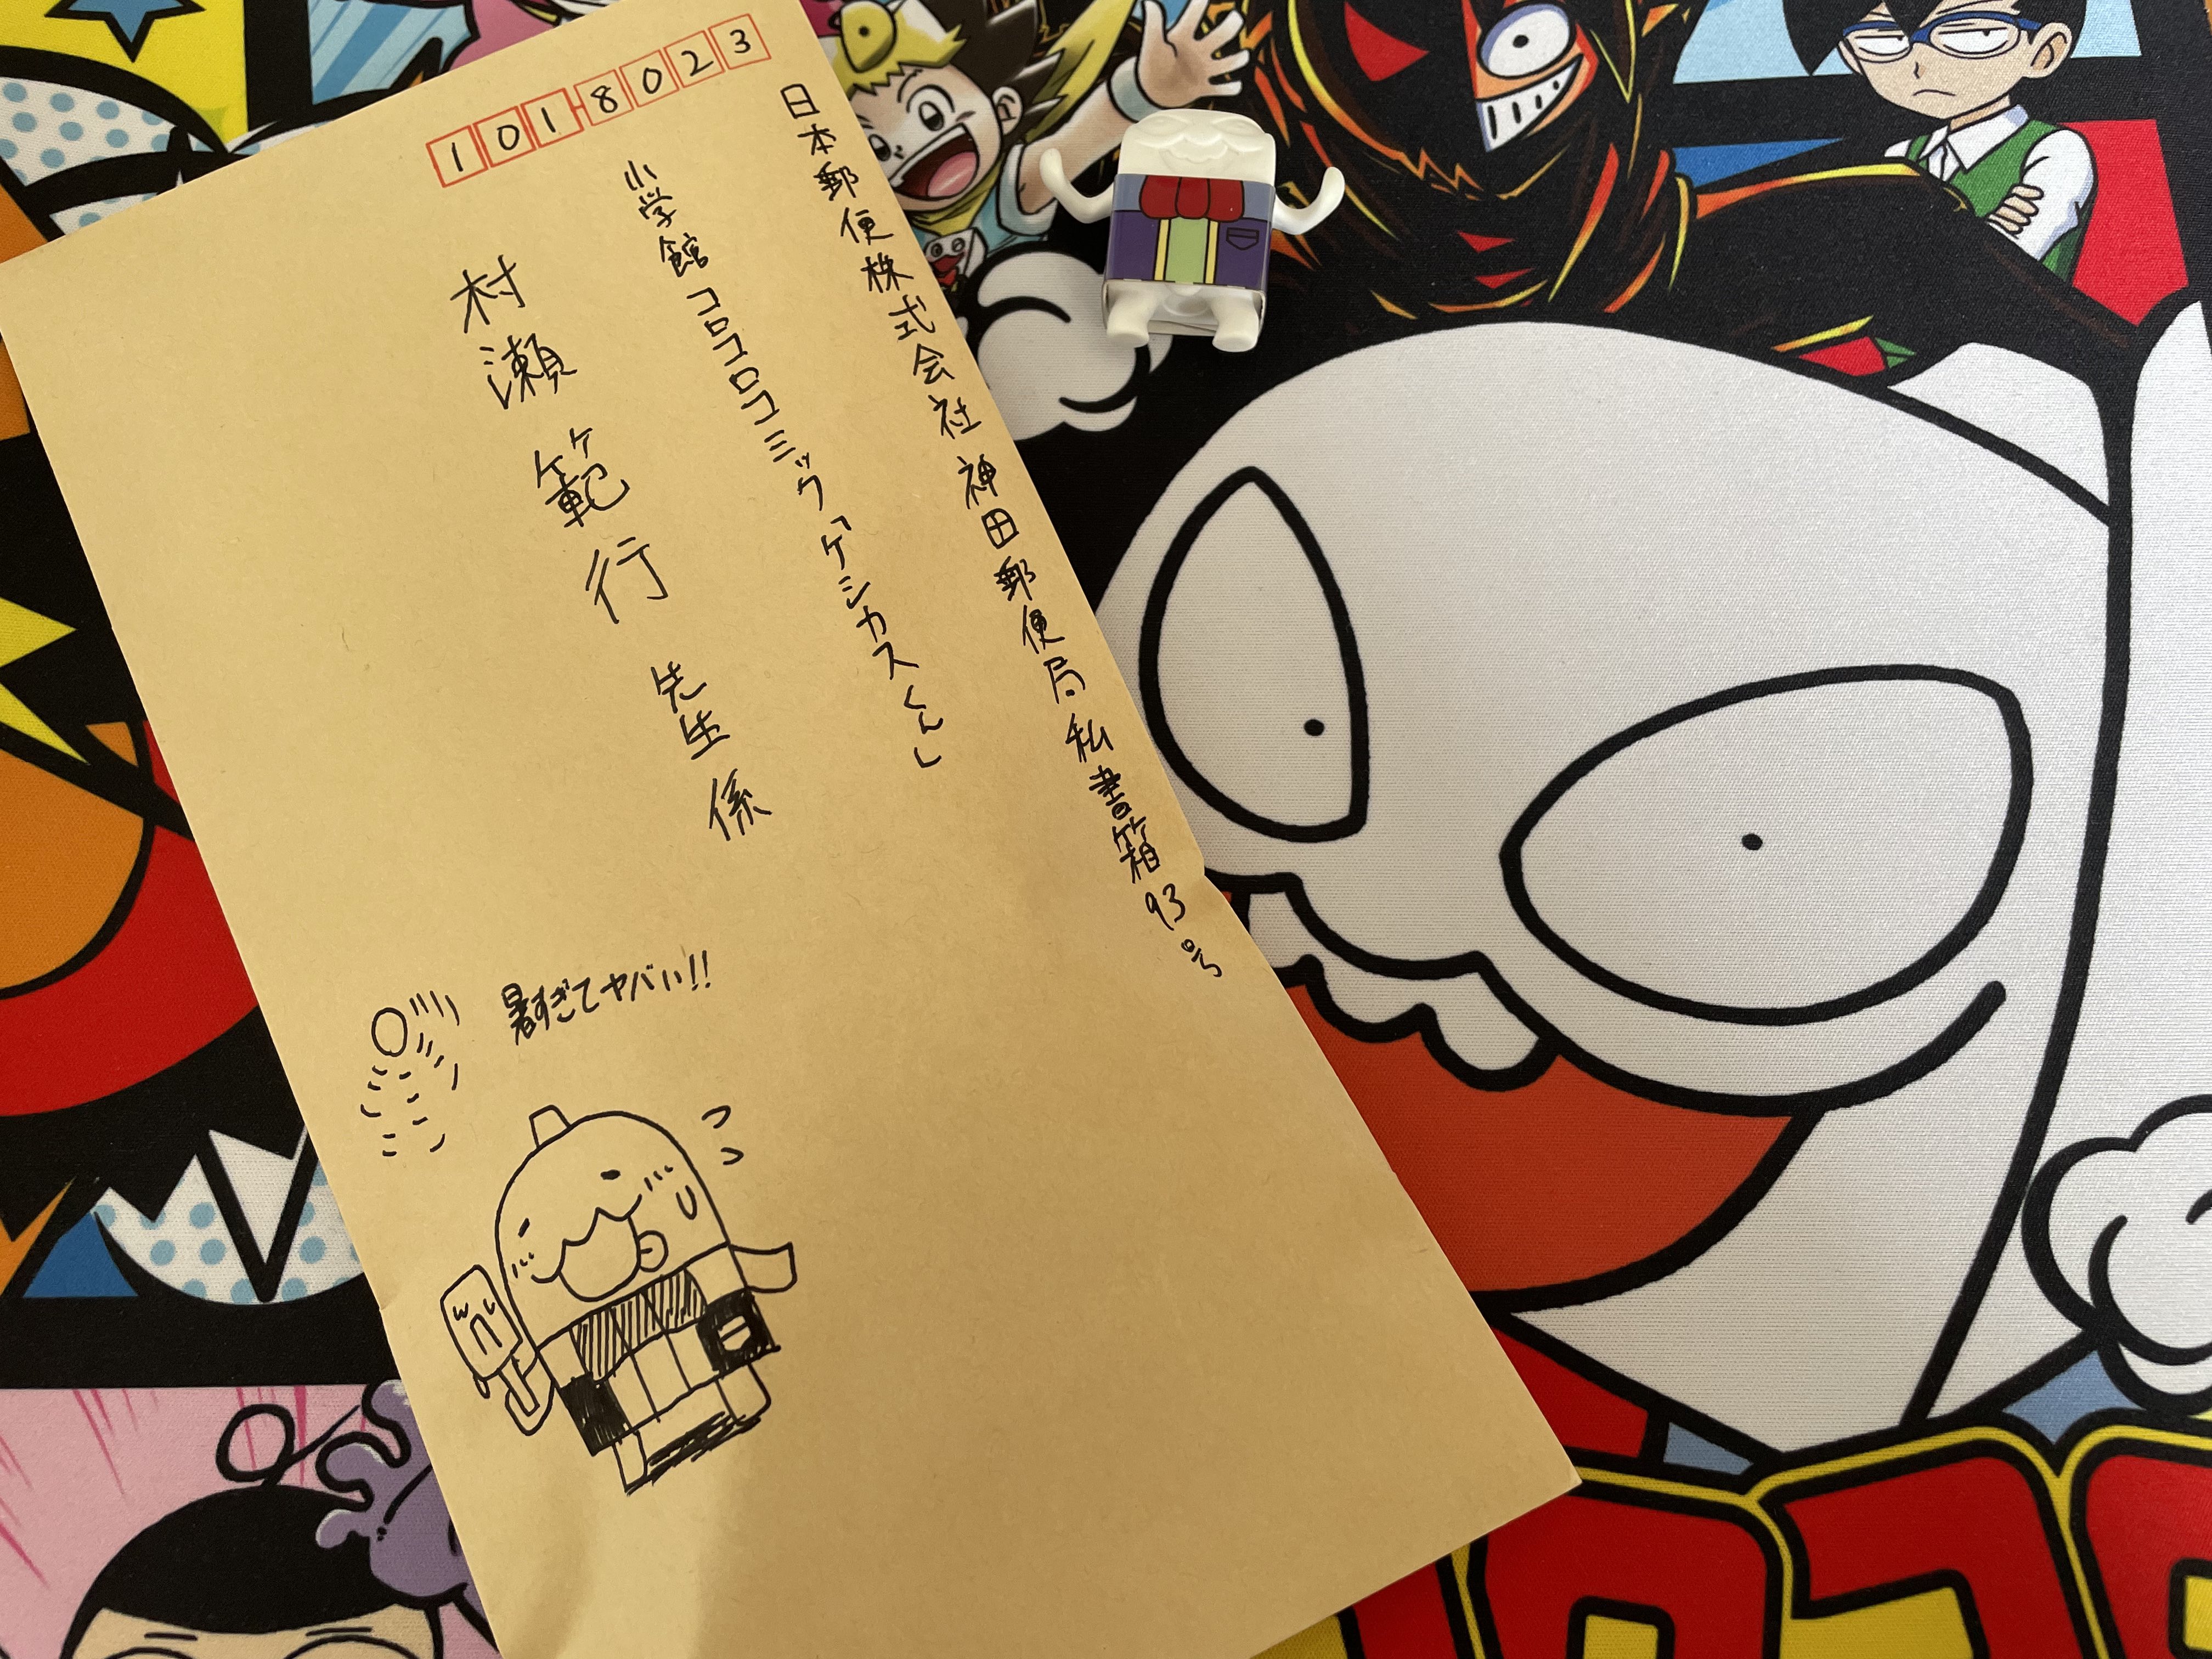 101-8023
日本郵便株式会社 神田郵便局 私書箱 93号
小学館 コロコロコミック「ケシカスくん」
村瀬範行 先生 係
暑すぎてヤバい!!
コロ